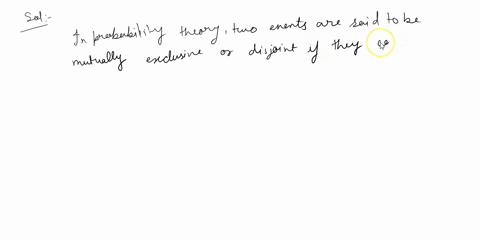 Sol:-
In probability theory, two events are said to be
mutually exclusive or disjoint if they